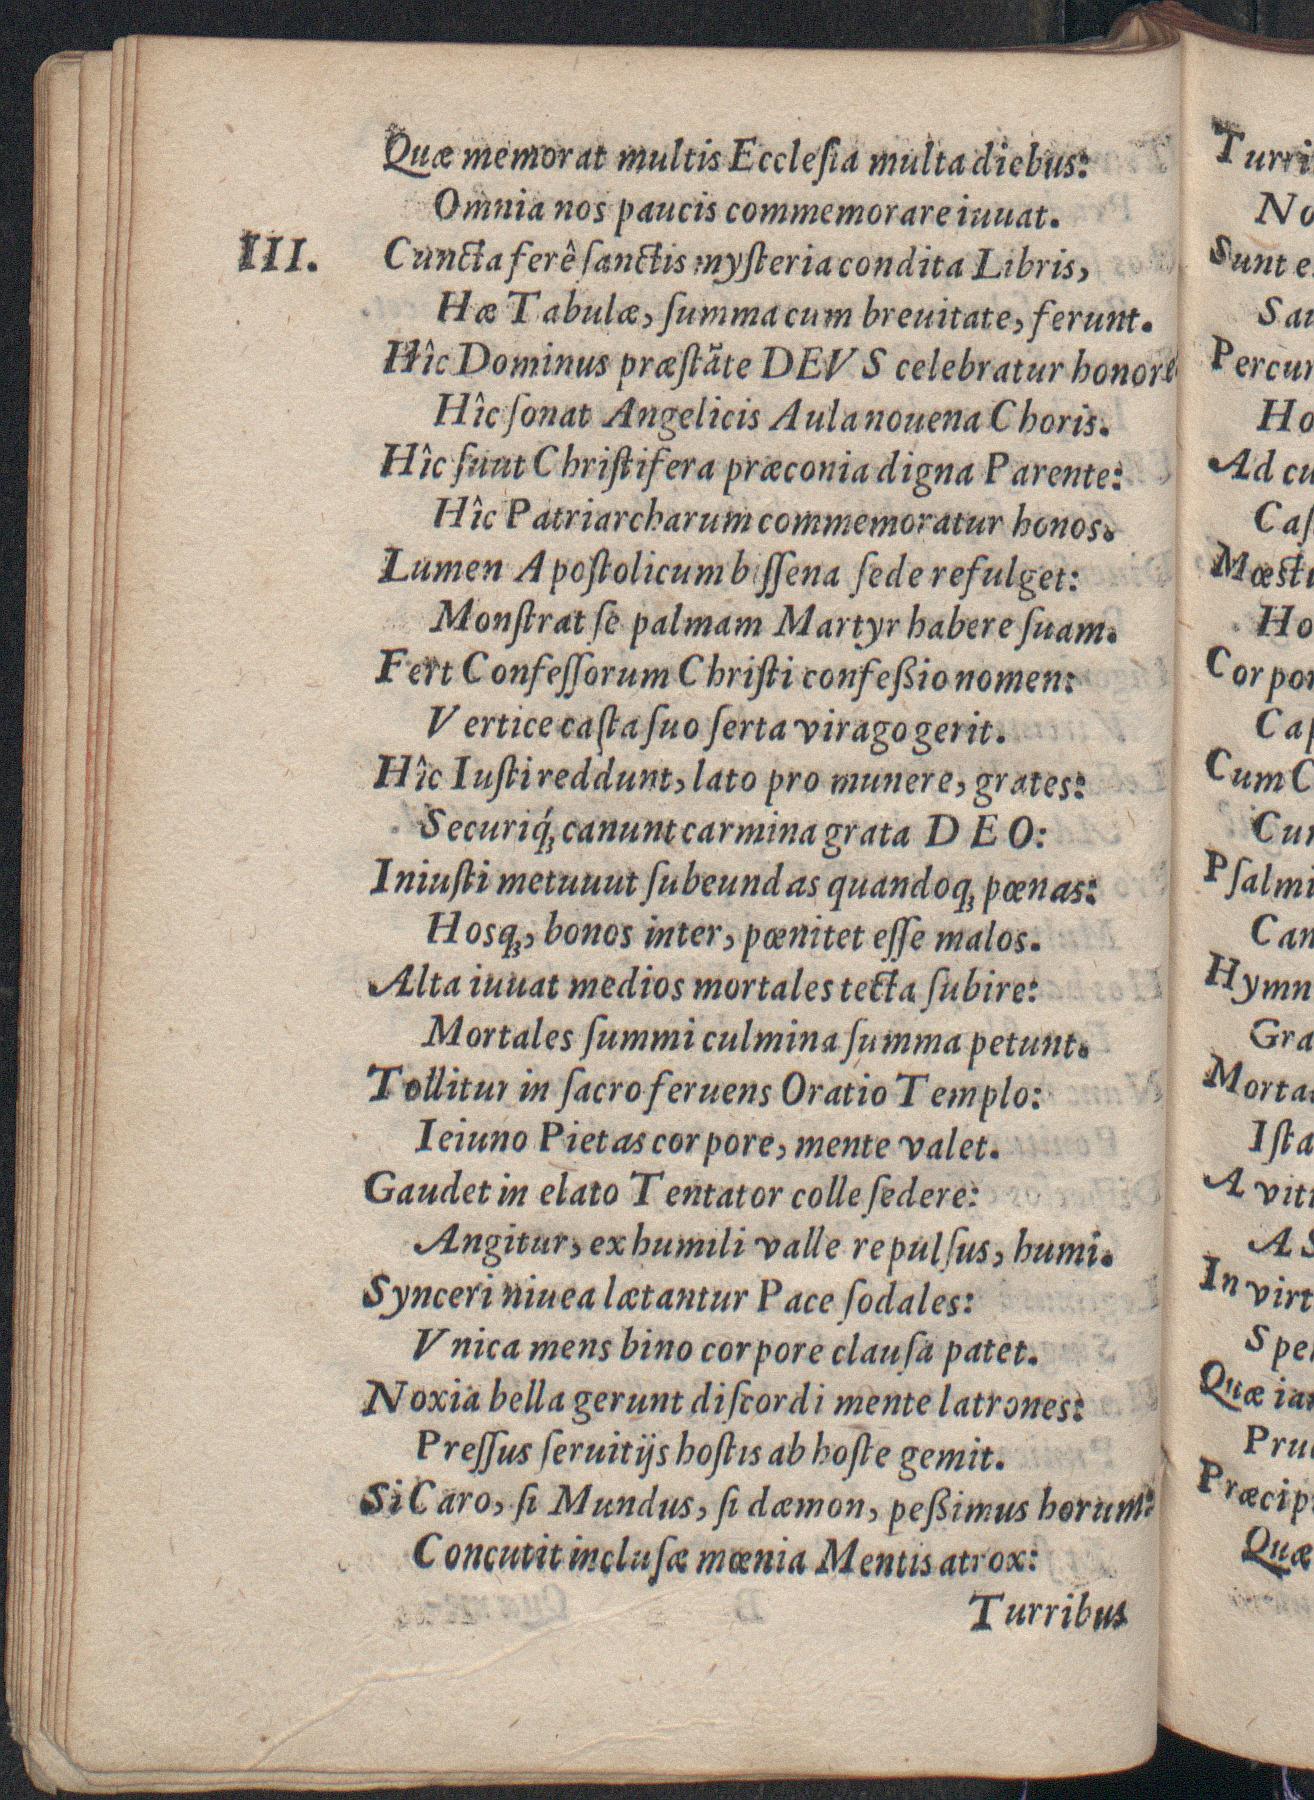 Quæ memorat multis Eccleſia multa diebus:
Omnia nos paucis commemorare iuuat.
III. Cuncta ferê ſanctis myſteria condita Libris,
Hæ Tabulæ, ſumma cum breuitate, ferunt.
Hîc Dominus præſtāte DEVS celebratur honore
Hîc ſonat Angelicis Aula nouena Choris.
Hîc ſunt Chriſtifera præconia digna Parente:
Hîc Patriarcharum commemoratur honos.
Lumen Apoſtolicum biſſena ſede refulget:
Monſtrat ſe palmam Martyr habere ſuam.
Fert Confeſſorum Chriſti confeßio nomen:
Vertice caſta ſuo ſerta virago gerit.
Hîc Iuſti reddunt, lato pro munere, grates:
Securiq́ꝫ canunt carmina grata DEO:
Iniuſti metuuut ſubeundas quandoqꝫ pœnas:
Hosqꝫ, bonos inter, pœnitet eſſe malos.
Alta iuuat medios mortales tecta ſubire:
Mortales ſummi culmina ſumma petunt.
Tollitur in ſacro feruens Oratio Templo:
Ieiuno Pietas corpore, mente valet.
Gaudet in elato Tentator colle ſedere:
Angitur, ex humili valle repulſus, humi.
Synceri niuea lætantur Pace ſodales:
Vnica mens bino corpore clauſa patet.
Noxia bella gerunt diſcordi mente latrones:
Preſſus ſeruitijs hoſtis ab hoſte gemit.
Si Caro, ſi Mundus, ſi dæmon, peßimus horum:
Concutit incluſæ mœnia Mentis atrox:
Turribus
Turri
No
Sunt e
Sau
Percur
Ho
Ad cu
Caſ
Mœsti
Ho
Corpor
Cap
Cum C
Cur
Pſalmi
Can
Hymn
Gra
Morta
Iſta
A viti
A S
In virt
Spe
Quæ ia
Pru
Præcip
Quæ